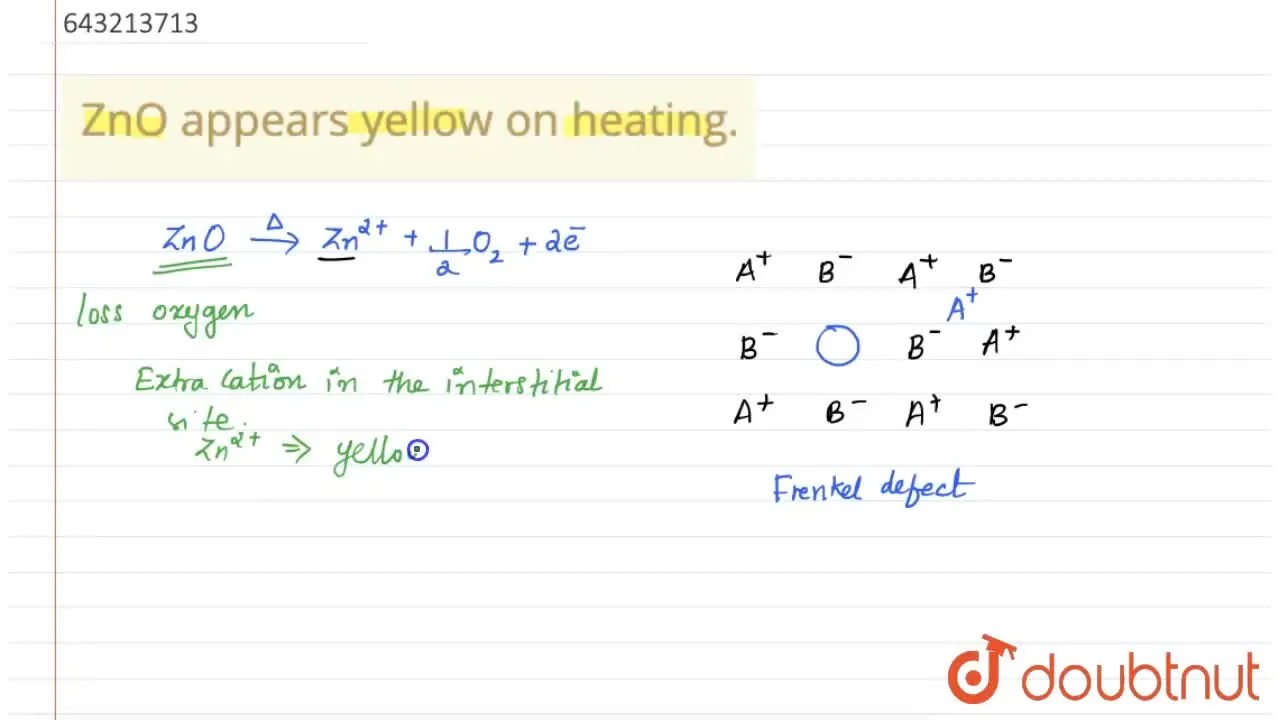 643213713
ZnO appears yellow on heating.
ZnO →^Δ Zn²⁺ + 1/2 O₂ + 2e⁻
loss oxygen
Extra Cation in the interstitial
site.
Zn²⁺ ⇒ yello
A⁺ B⁻ A⁺ B⁻
A⁺
B⁻ B⁻ A⁺
A⁺ B⁻ A⁺ B⁻
Frenkel defect
doubtnut